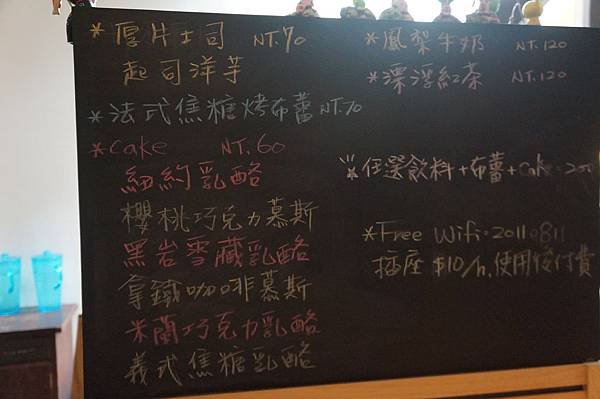 *厚片土司 NT.70
起司洋芋
*法式焦糖烤布蕾 NT.70
*cake NT.60
紐約乳酪
櫻桃巧克力慕斯
黑岩雪藏乳酪
拿鐵咖啡慕斯
米蘭巧克力乳酪
義式焦糖乳酪
*鳳梨牛奶 NT.120
*漂浮紅茶 NT.120
*任選飲料+布蕾+Cake.200
*Free Wifi.20110811
插座$10/h,使用後付費